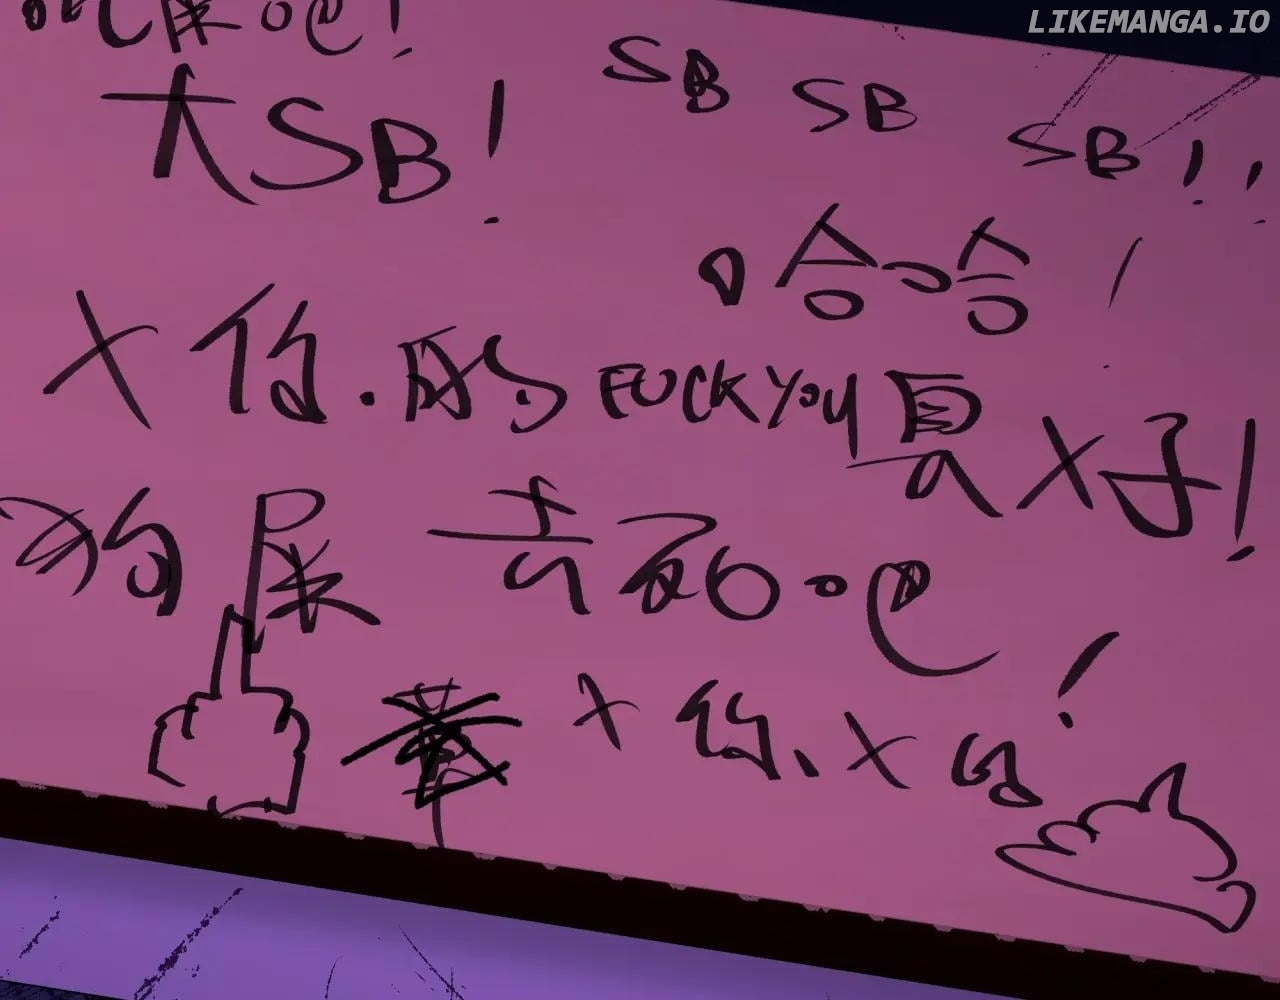 LIKEMANGA.IO
屎吧!
大SB! SB SB SB!!
哈哈!
X你.的 FUCK YOU 真X子!
狗屎 去死吧!
X你、X的